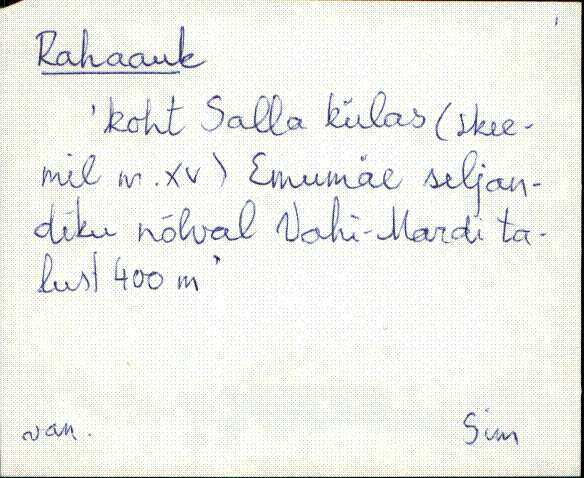 Rahaauk
'koht Salla külas (skee-
mil nr. XV) Emumäe seljan-
diku nõlval Vahi-Mardi ta-
lust 400 m'
van. Sim